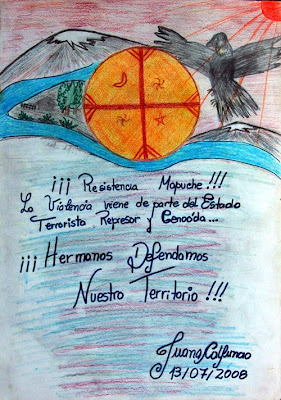 ¡¡¡ Resistencia Mapuche !!!
La Violencia viene de parte del Estado
Terrorista Represor y Genocida...
¡¡¡ Hermanos Defendamos
Nuestro Territorio !!!
Juana Calfunao
13/07/2008